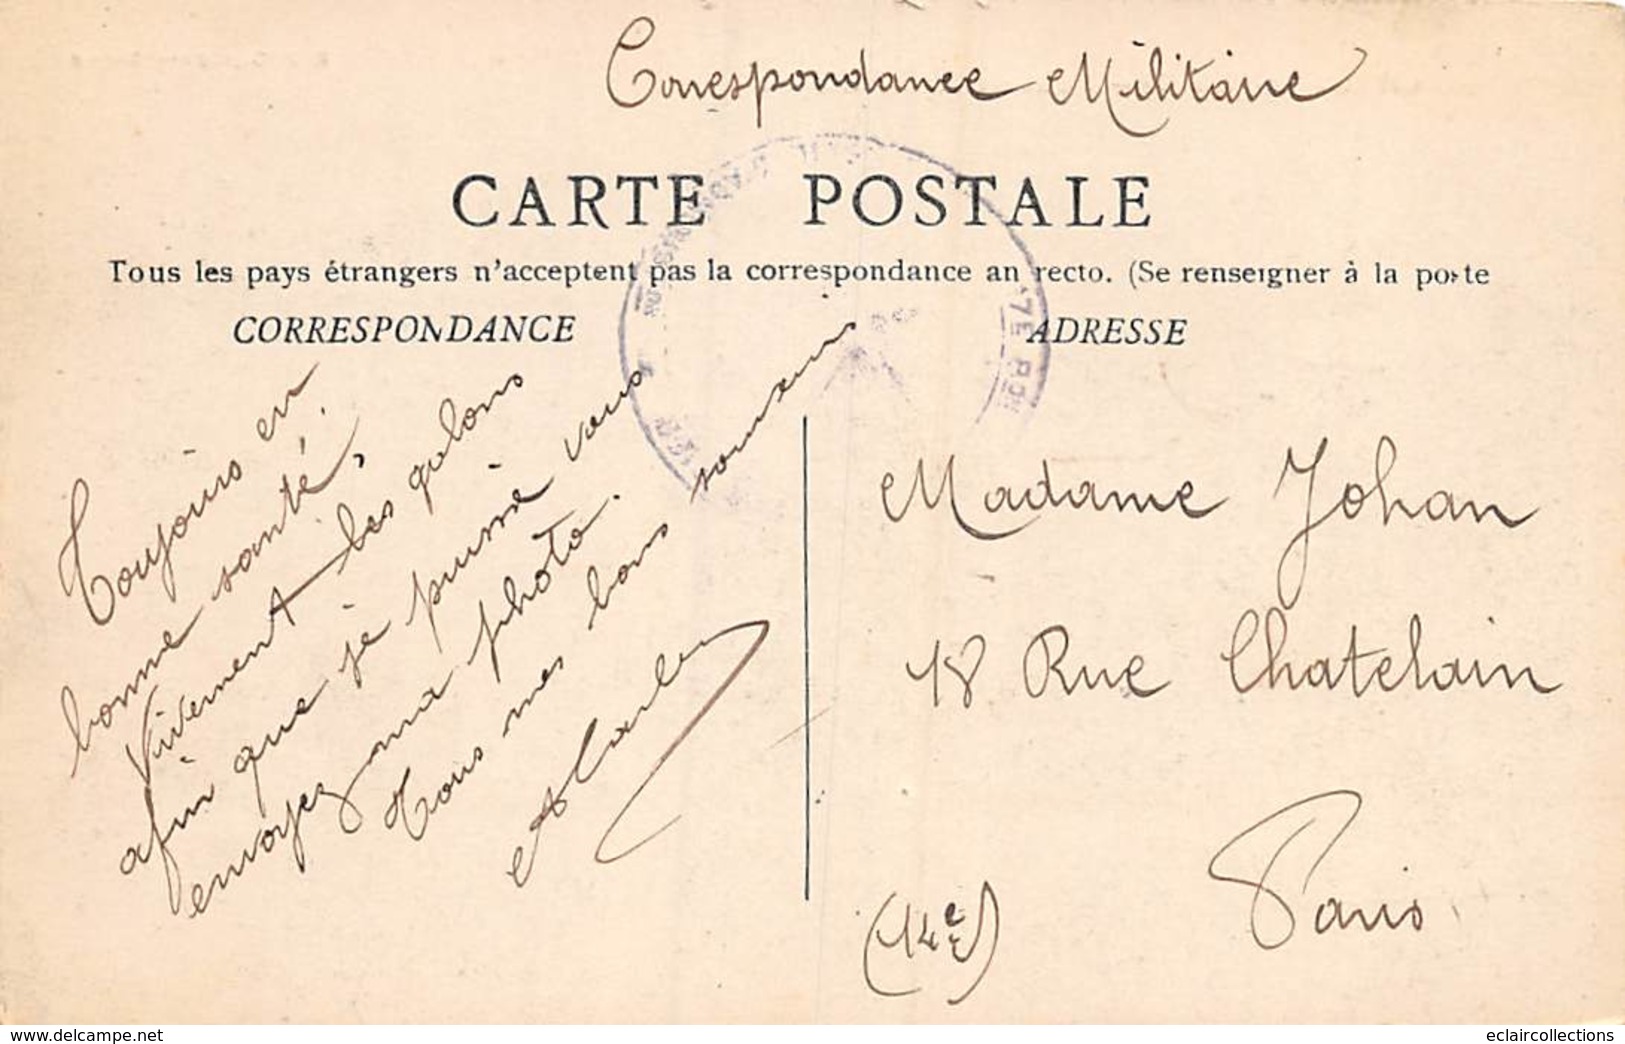 Correspondance Militaire
CARTE POSTALE
Tous les pays étrangers n'acceptent pas la correspondance au recto. (Se renseigner à la poste
CORRESPONDANCE
ADRESSE
Toujours en
bonne santé,
Vivement les galons
afin que je puisse vous
envoyez ma photo.
Tous mes bons souvenirs
Madame Johan
18 Rue Chatelain
Paris
(14e)
eclaircollections
www.delcampe.net